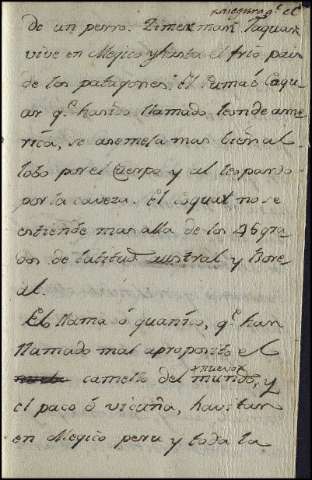 de un perro. Zimerman, Taguara
vive en Megico y hasta el frio pais
de los patagones. El Puma ó Cagu-
ar q.e han los llamado leon de ame-
rica, se asemeja mas bien al
lobo por el Cuerpo y al leopardo
por la caveza. El no se
estiende mas alla de los 46 gra-
dos de latitud austral y Bore-
al.
El llama ó guanaco, q.e han
llamado mal aproposito el
camello del nuevo mundo, y
el paco ó vicuña, havitan
en Megico peru y toda la